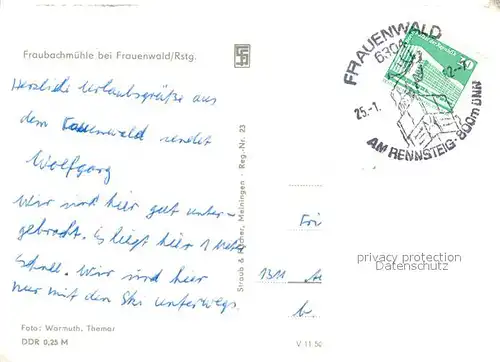 Fraubachmühle bei Frauenwald/Rstg.
Herzliche Urlaubsgrüße aus
dem Frauenwald sendet
Wolfgang
Wir sind hier gut unter-
gebracht. Es liegt hier 1 Meter
Schnee. Wir sind hier
nur mit den Ski unterwegs.
Foto: Warmuth, Themar
DDR 0,25 M
Straub & Fischer, Meiningen - Reg.-Nr. 23
V 11 50
FRAUENWALD
6304
25.-1.
AM RENNSTEIG·800m ÜNN
Fri
1311
b.
privacy protection
Datenschutz